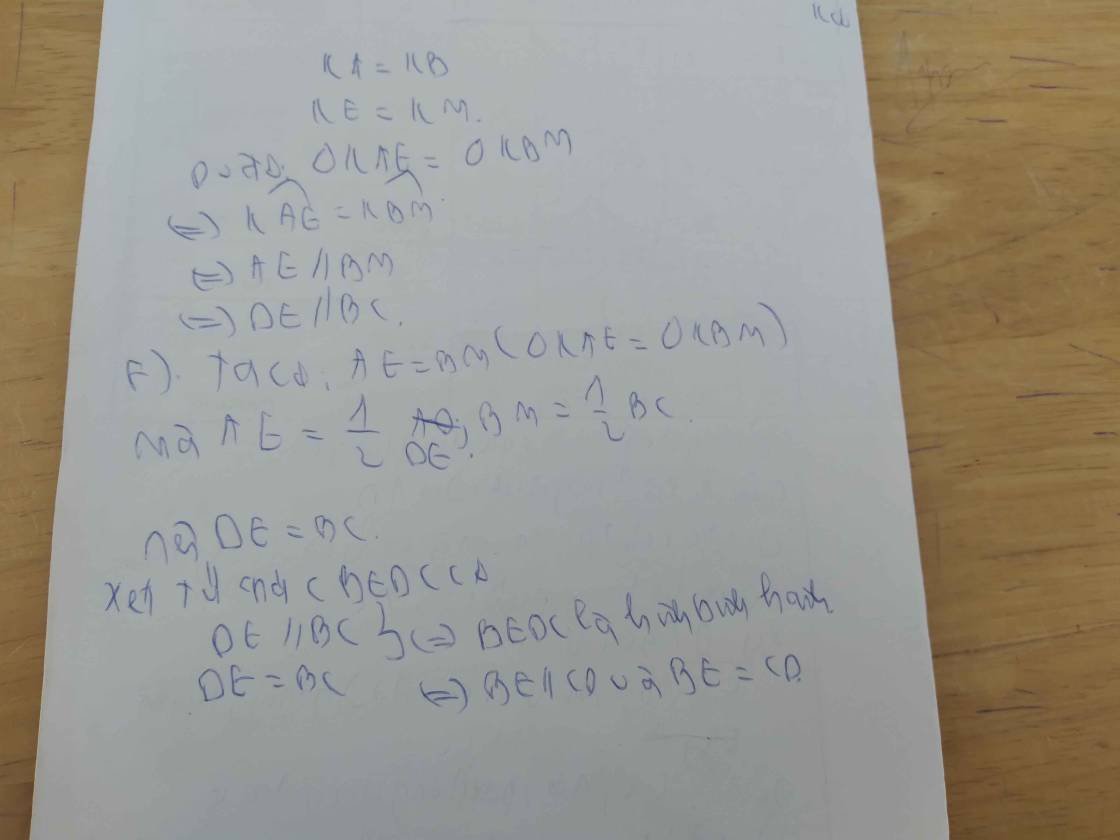 Kd
KA = KB
KE = KM.
DKAE = DKBM
<=> KAE = KBM
<=> AE // BM
<=> DE // BC.
F). Ta có: AE = BM (DKAE = DKBM)
mà AE = 1/2 DE; BM = 1/2 BC.
nên DE = BC.
Xét tứ giác BEDC có
DE // BC } <=> BEDC là hình bình hành
DE = BC <=> BE // CD và BE = CD.